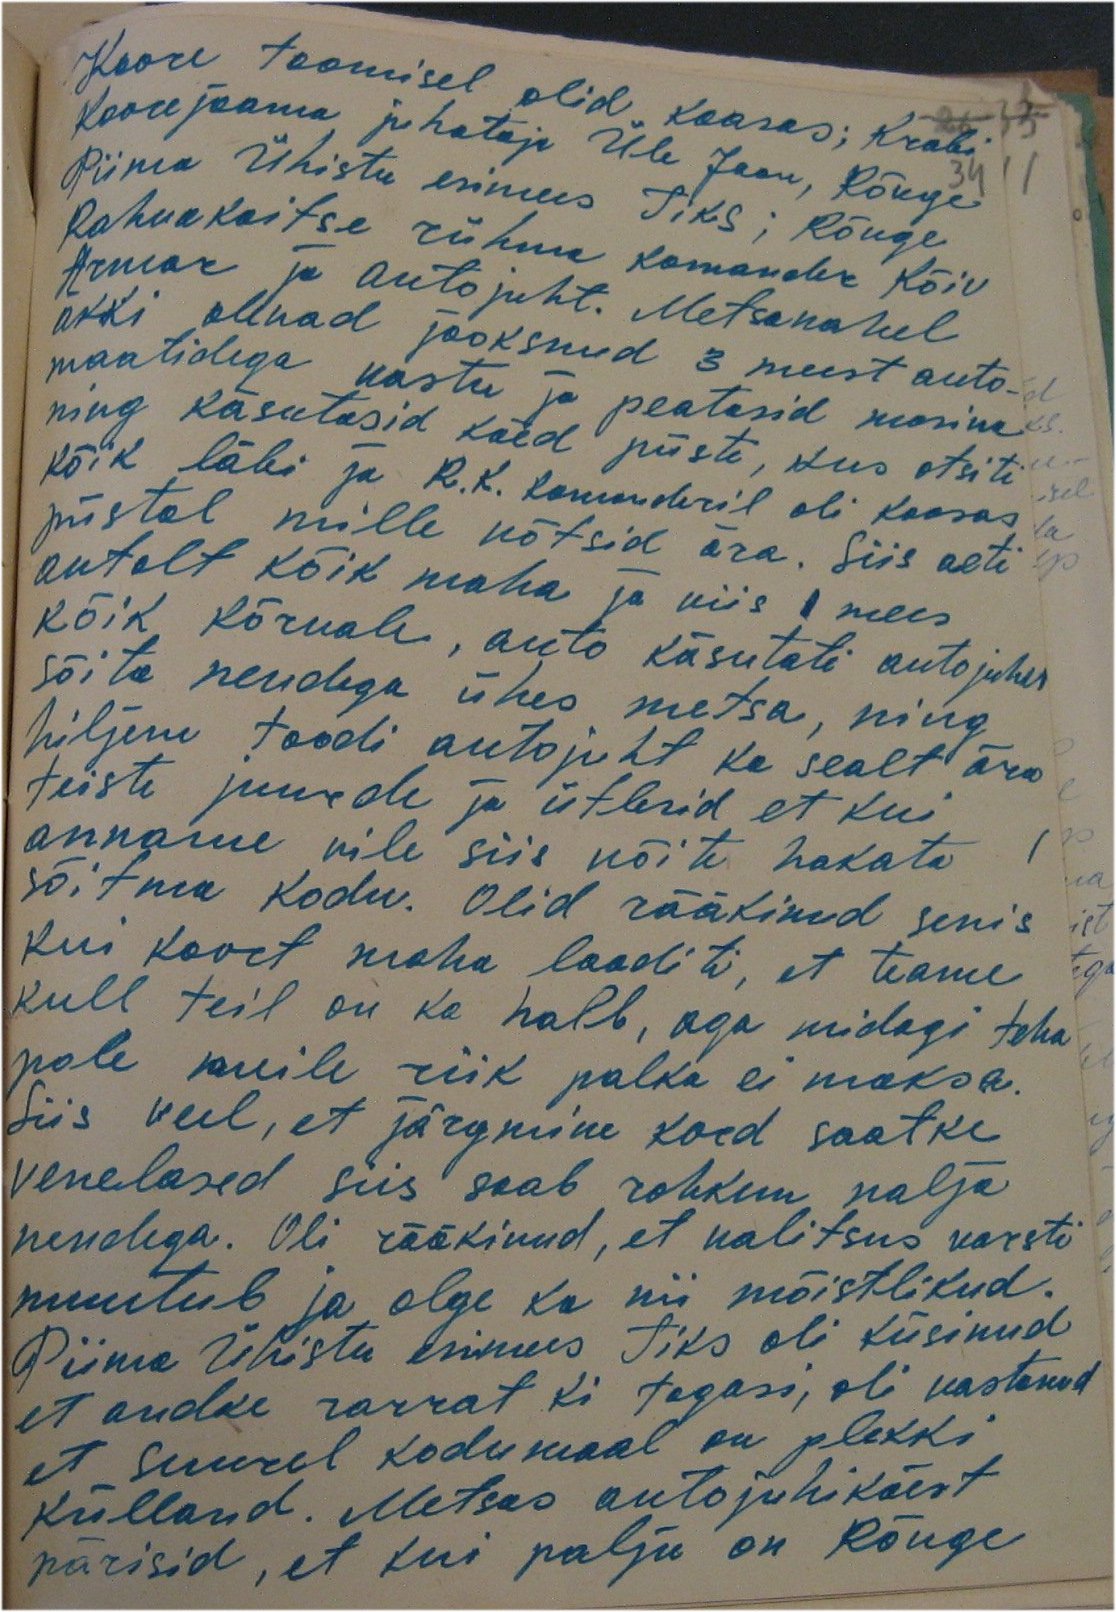 Koore toomisel olid kaasas; Krabi
Koorejaama juhataja Üle Jaan, Rõuge
34
Piima Ühistu esimees Tiks; Rõuge
Rahvakaitse rühma komander Kõiv
Armar ja autojuht. Metsavahel
äkki olevad jooksnud 3 meest auto-
maatidega vastu ja peatasid masina
ning käsutasid käed püsti, kus otsiti
kõik läbi ja R.K. komanderil oli kaasas
püstol mille võtsid ära. Siis aeti
autolt kõik maha ja viis 1 mees
kõik kõrvale, auto käsutati autojuher
sõita nendega ühes metsa, ning
hiljem toodi autojuht ka sealt ära
teiste juurde ja ütlesid et kui
anname vile siis võite hakata
sõitma kodu. Olid rääkinud senis
kui koort maha laaditi, et teame
kull teil on ka halb, aga midagi teha
pole meile riik palka ei maksa.
Siis veel, et järgmine kord saatke
venelased siis saab rohkem nalja
nendega. Oli rääkinud, et valitsus varsti
muutub ja olge ka nii mõistlikud.
Piima Ühistu esimees Tiks oli küsinud
et andke varrat ki tagasi, oli vastanud
et suurel kodumaal on plekki
külland. Metsas autojuhikäest
pärisid, et kui palju on Rõuge